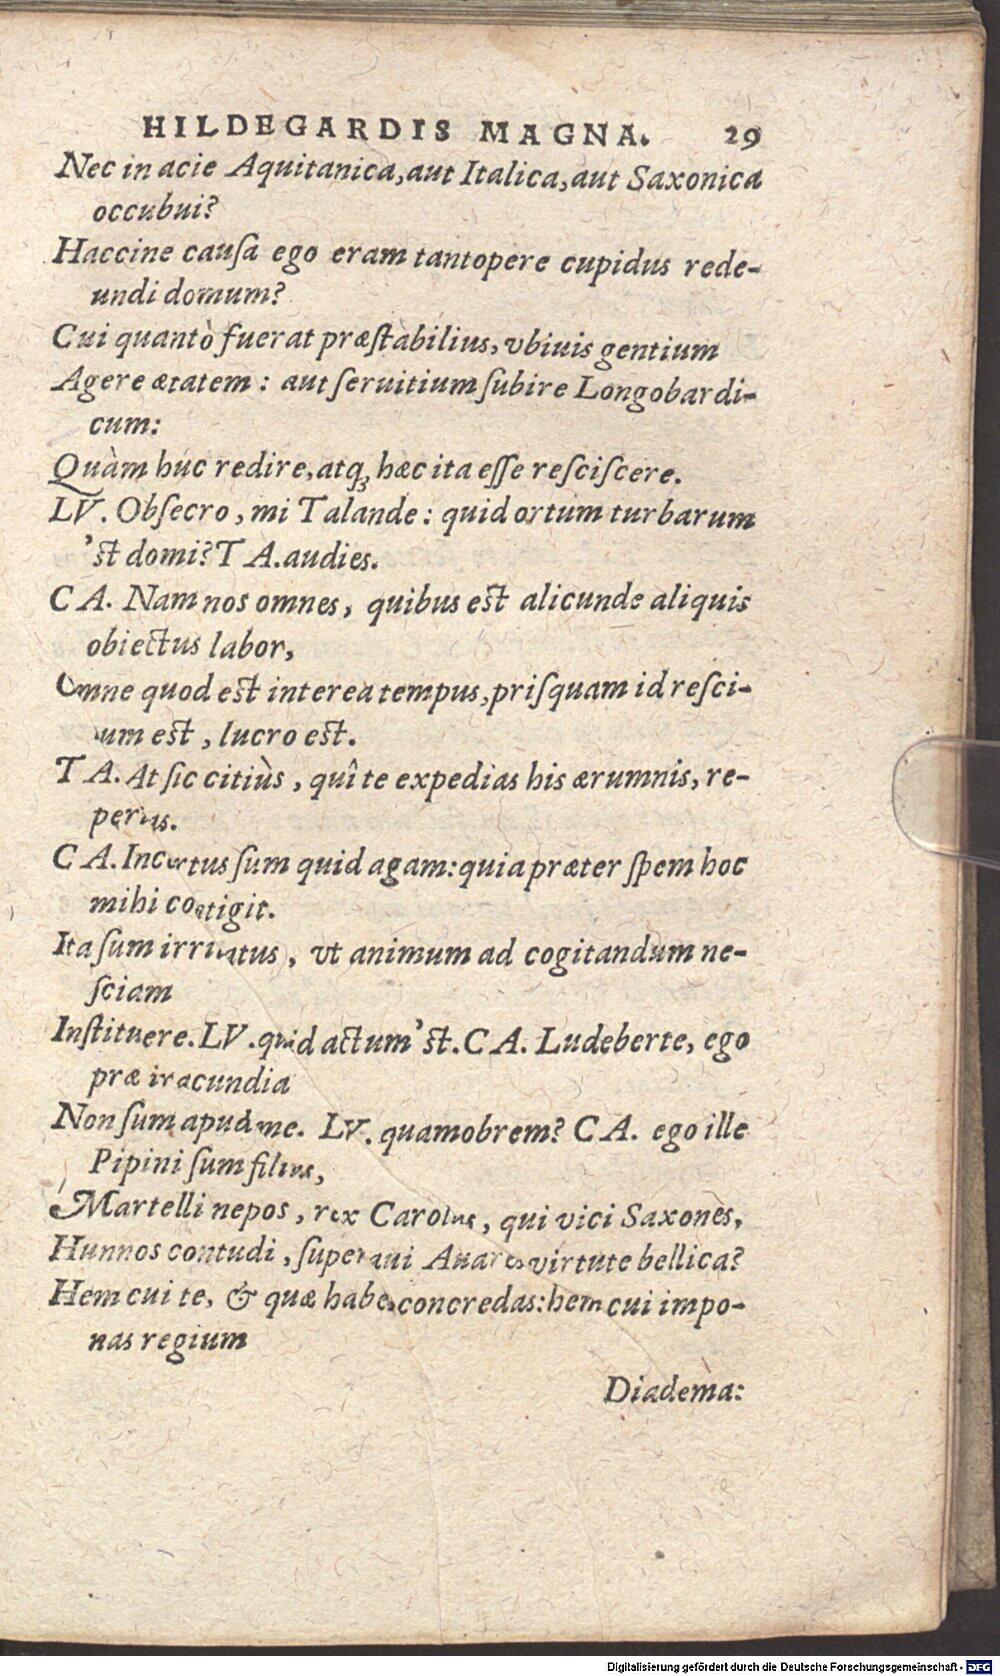 HILDEGARDIS MAGNA. 29
Nec in acie Aquitanica, aut Italica, aut Saxonica
occubui?
Haccine cauſa ego eram tantopere cupidus rede-
undi domum?
Cui quantò fuerat præſtabilius, vbiuis gentium
Agere ætatem: aut ſeruitium ſubire Longobardi-
cum:
Quàm huc redire, atq; hæc ita eſſe reſciſcere.
LV. Obſecro, mi Talande: quid ortum turbarum
'ſt domi? TA. audies.
CA. Nam nos omnes, quibus eſt alicunde aliquis
obiectus labor,
Omne quod eſt interea tempus, priſquam id reſci-
tum eſt, lucro eſt.
TA. At ſic citiùs, quî te expedias his ærumnis, re-
perias.
CA. Incertus ſum quid agam: quia præter ſpem hoc
mihi cotigit.
Ita ſum irritatus, vt animum ad cogitandum ne-
ſciam
Inſtituere. LV. quid actum'ſt. CA. Ludeberte, ego
præ iracundia
Non ſum apud me. LV. quamobrem? CA. ego ille
Pipini ſum filius,
Martelli nepos, rex Carolus, qui vici Saxones,
Hunnos contudi, ſuperaui Auares virtute bellica?
Hem cui te, & quæ habes concredas: hem cui impo-
nas regium
Diadema:
Digitalisierung gefördert durch die Deutsche Forschungsgemeinschaft - DFG